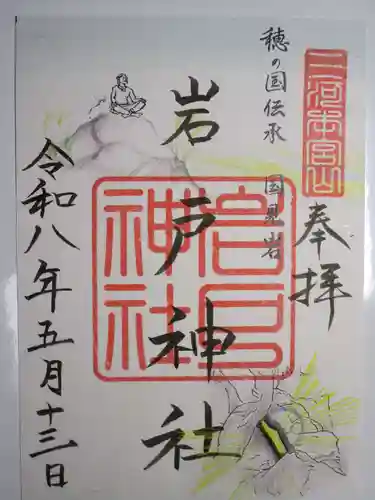 三河本宮山
穂の国伝承 国見岩
奉拝
岩戸神社
岩戸神社
令和八年五月十三日